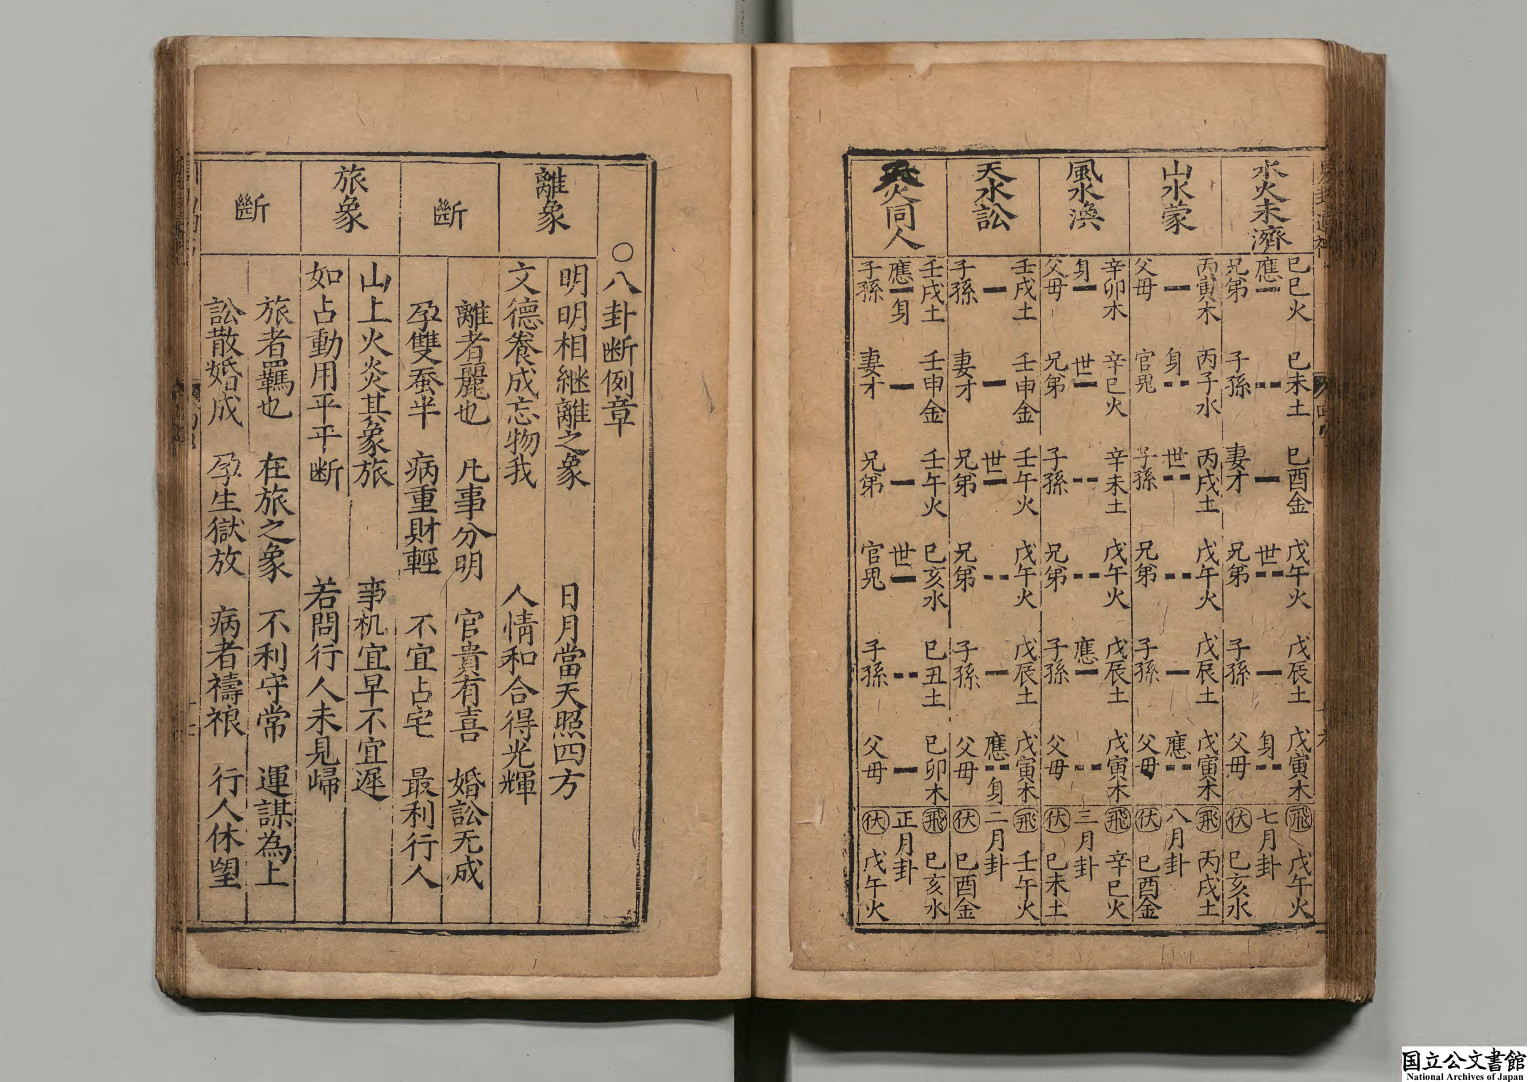 水火未濟
巳巳火 巳未土 巳酉金 戊午火 戊辰土 戊寅木 飛 戊午火
應 世 身 七月卦
兄弟 子孫 妻才 兄弟 子孫 父母 伏 巳亥水
山水蒙
丙寅木 丙子水 丙戌土 戊午火 戊辰土 戊寅木 飛 丙戌土
身 世 應 八月卦
父母 官鬼 子孫 兄弟 子孫 父母 伏 巳酉金
風水渙
辛卯木 辛巳火 辛未土 戊午火 戊辰土 戊寅木 飛 辛巳火
身 世 應 三月卦
父母 兄弟 子孫 兄弟 子孫 父母 伏 巳未土
天水訟
壬戌土 壬申金 壬午火 戊午火 戊辰土 戊寅木 飛 壬午火
世 應 身 二月卦
子孫 妻才 兄弟 兄弟 子孫 父母 伏 巳酉金
天火同人
壬戌土 壬申金 壬午火 巳亥水 巳丑土 巳卯木 飛 巳亥水
應 身 世 正月卦
子孫 妻才 兄弟 官鬼 子孫 父母 伏 戊午火
○八卦断例章
離象
明明相継離之象 日月當天照四方
文德養成忘物我 人情和合得光輝
斷
離者麗也 凡事分明 官貴有喜 婚訟无成
孕雙蚕半 病重財輕 不宜占宅 最利行人
旅象
山上火炎其象旅 事机宜早不宜遲
如占動用平平断 若問行人未見歸
斷
旅者羈也 在旅之象 不利守常 運謀為上
訟散婚成 孕生獄放 病者禱禳 行人休望
国立公文書館
National Archives of Japan